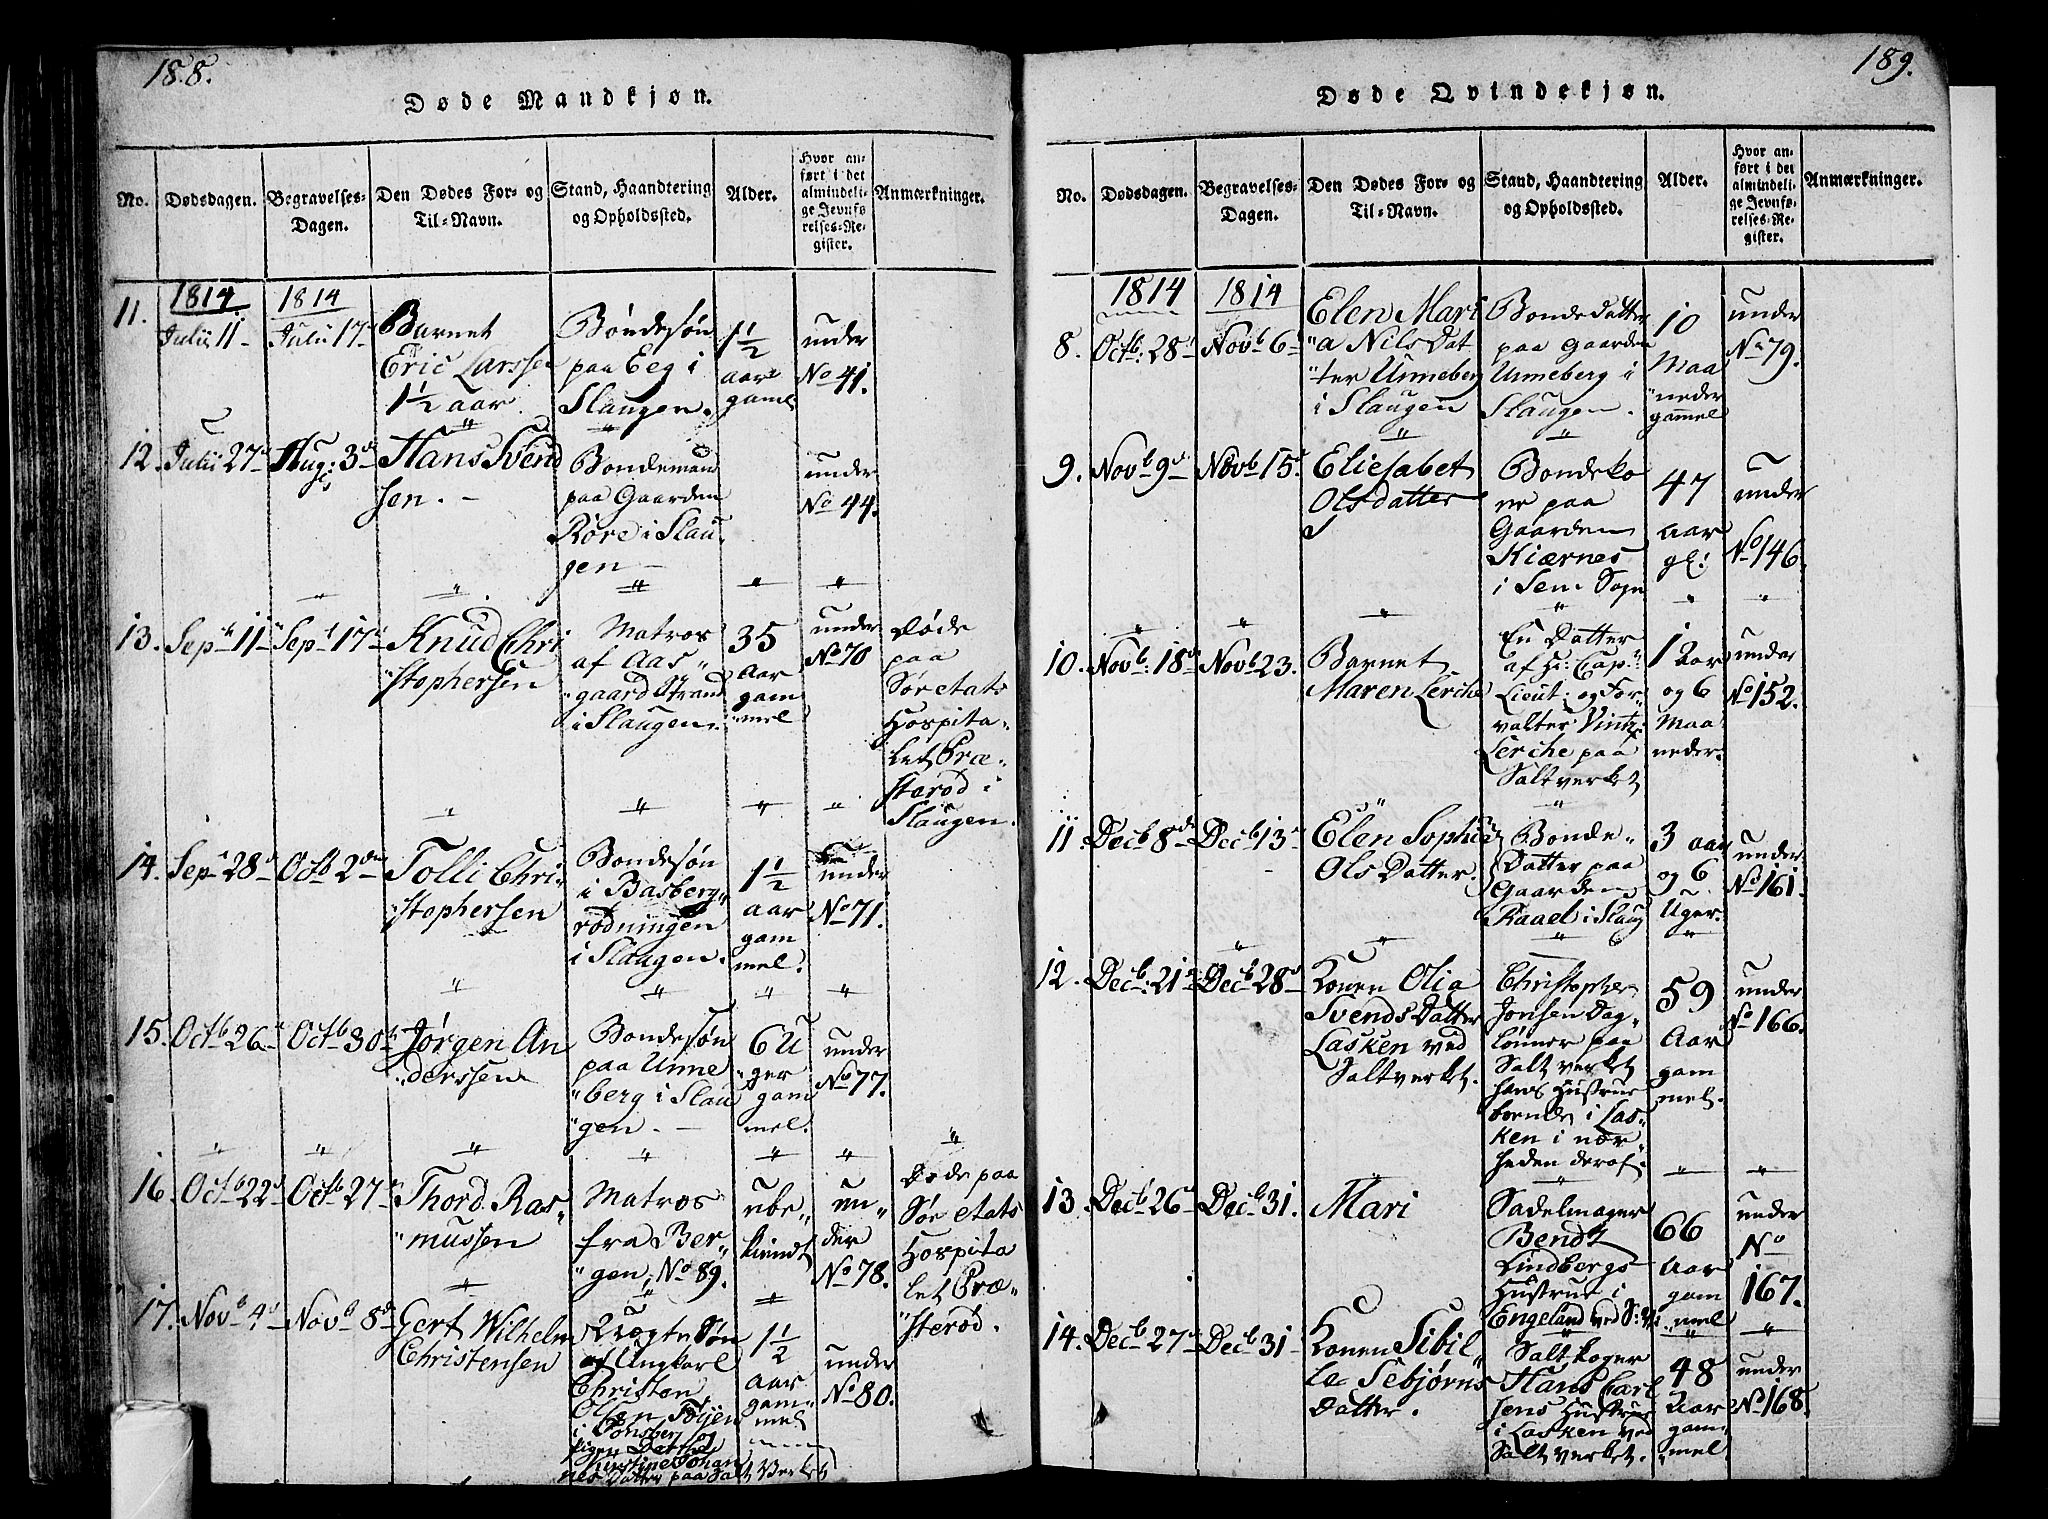 188.
Døde Mandkjøn.
No.
Dødsdagen.
Begravelses-
Dagen.
Den Dødes For- og
Til-Navn.
Stand, Haandtering
og Opholdssted.
Alder.
Hvor an-
ført i det
almindeli-
ge Jevnfø-
relses-Re-
gister.
Anmærkninger.
1814.
1814
11.
Julii 11
Julii 17
Barnet
Eric Larssen
1½ aar
Bondesøn
paa Eeg i
Slaugen.
1½
aar
gamel
under
No 41.
12.
Julii 27
Aug: 3
Hans Svend
sen.
Bondemand
paa Gaarden
Røre i Slau
gen
under
No 44.
13.
Sep 11
Sep 17
Knud Chri
stophersen
Matros
af Aas
gaard Strand
i Slaugen.
35
Aar
gam
mel
under
No 70
Døde
paa
Søe etats
Hospita
let Præ
sterød i
Slaugen.
14.
Sep 28
Octb 2den
Tolli Chri
stophersen
Bondesøn
i Basberg
rødningen
i Slaugen.
1½
aar
gam
mel.
under
No 71.
15.
Octb 26
Octb 30
Jørgen An
derssen
Bondesøn
paa Unne
berg i Slau
gen.
6 U
ger
gam
mel.
under
No 77.
16.
Octb 22
Octb 27
Thord Ras
mussen
Matros
fra Ber
gen, No 89.
ube
kiendt
un
der
No 78.
Døde paa
Søe etats
Hospita
let Præ
sterød.
17.
Novb 4
Novb 8
Gert Wilhelm
Christensen
Uægte Søn
af Ungkarl
Christen
Olsen Føyen
i Tønsberg og
Pigen
Kirstine Johan
nes Datter paa Salt Verket
1½
aar
gam
mel
under
No 80.
189.
Døde Qvindekjøn.
No.
Dødsdagen.
Begravelses-
Dagen.
Den Dødes For- og
Til-Navn.
Stand, Haandtering
og Opholdssted.
Alder.
Hvor an-
ført i det
almindeli-
ge Jevnfø-
relses-Re-
gister.
Anmærkninger.
1814
1814
8.
Octb: 28
Novb 6
Elen Mari
a Nils Dat
ter Unneberg
i Slaugen
Bonde Datter
paa Gaarden
Unneberg i
Slaugen.
10
Maa
neder
gammel
under
No 79.
9.
Novb 9
Novb 15
Eliesabet
Olsdatter
Bondeko
ne paa
Gaarden
Kiærnes
i Sem Sogn
47
aar
gl:
under
No 146.
10.
Novb: 18
Novb 23.
Barnet
Maren Lerche
En Datter
af Hr: Cap:
Lieut: og For
valter Vintz
Lerche paa
Saltverket
1 Aar
og 6
Maa
neder.
under
No 152.
11
Decb 8de
Decb 13
Elen Sophie
Ols Datter.
Bonde
Datter paa
Gaarden
Raael i Slaug
3 aar
og 6
Uger.
under
No 161.
12.
Decb: 21
Decb 28
Konen Olia
Svends Datter
Lasken ved
Saltverket.
Christopher
Jonsen Dag
lønner paa
Salt verket
hans Hustrue
boende i Las
ken i nær
heden deraf
59
Aar
gam
mel.
under
No 166.
13
Decb 26
Decb 31.
Mari
Sadelmager
Bendt
Lindbergs
Hustrue i
Engeland ved
66
Aar
gam
mel
under
No
167.
14.
Decb 27
Decb 31
Konen Sibil
le Sebjørns
Datter.
Saltkoger
Hans Carl
sens Hustrue
i Lasken ved
Salt verket.
48
Aar
gam
mel
under
No 168.